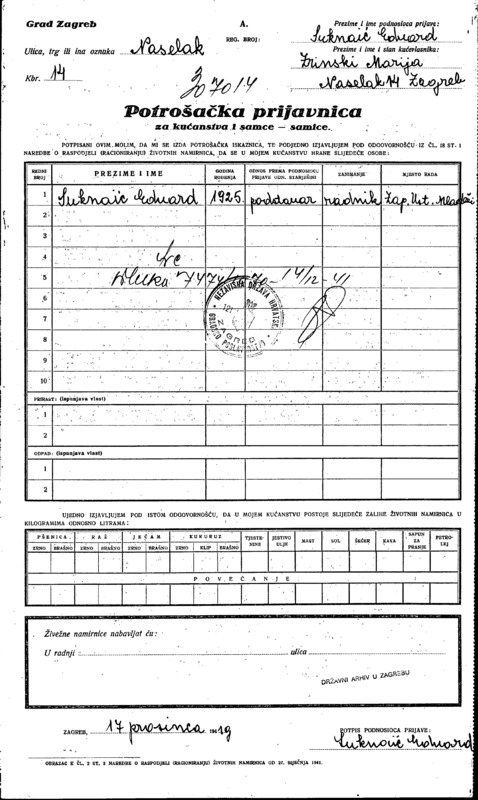 Grad Zagreb
A.
REG. BROJ:
Prezime i ime podnosioca prijave:
Suknaić Eduard
Ulica, trg ili ina oznaka Naselak
Prezime i ime i stan kućevlasnika:
Zrinski Marija
Kbr. 14
Naselak 14 Zagreb
Potrošačka prijavnica
za kućanstva i samce — samice.
POTPISANI OVIM MOLIM, DA MI SE IZDA POTROŠAČKA ISKAZNICA, TE PODJEDNO IZJAVLJUJEM POD ODGOVORNOŠĆU IZ ČL. 18 ST. 1
NAREDBE O RASPODJELI (RACIONIRANJU) ŽIVOTNIH NAMIRNICA, DA SE U MOJEM KUĆANSTVU HRANE SLIJEDEĆE OSOBE:
REDNI BROJ PREZIME I IME GODINA ROĐENJA ODNOS PREMA PODNOSIOCU PRIJAVE ODN. STARJEŠINI ZANIMANJE MJESTO RADA
1 Suknaić Eduard 1925. podstanar radnik
2
3
4
5
6
7
8
9
10
NEZAVISNA DRŽAVA HRVATSKA
ZAGREB
PRIRAST: (ispunjava vlast)
1
2
OTPAD: (ispunjava vlast)
1
2
UJEDNO IZJAVLJUJEM POD ISTOM ODGOVORNOŠĆU, DA U MOJEM KUĆANSTVU POSTOJE SLIJEDEĆE ZALIHE ŽIVOTNIH NAMIRNICA U
KILOGRAMIMA ODNOSNO LITRAMA:
PŠENICA RAŽ JEČAM KUKURUZ TJESTENINE JESTIVO ULJE MAST SOL ŠEĆER KAVA SAPUN ZA PRANJE PETROLEJ
ZRNO BRAŠNO ZRNO BRAŠNO ZRNO BRAŠNO ZRNO KLIP BRAŠNO
POVEĆANJE
Živežne namirnice nabavljat ću:
U radnji ulica
DRŽAVNI ARHIV U ZAGREBU
ZAGREB, 17 prosinca
POTPIS PODNOSIOCA PRIJAVE:
Suknaić Eduard
OBRAZAC K ČL. 2 ST. 3 NAREDBE O RASPODJELI (RACIONIRANJU) ŽIVOTNIH NAMIRNICA OD 27. SIJEČNJA 1941.